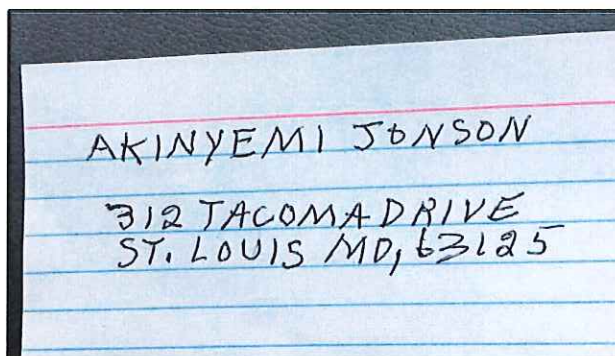 AKINYEMI JONSON
312 TACOMA DRIVE
ST. LOUIS MO, 63125